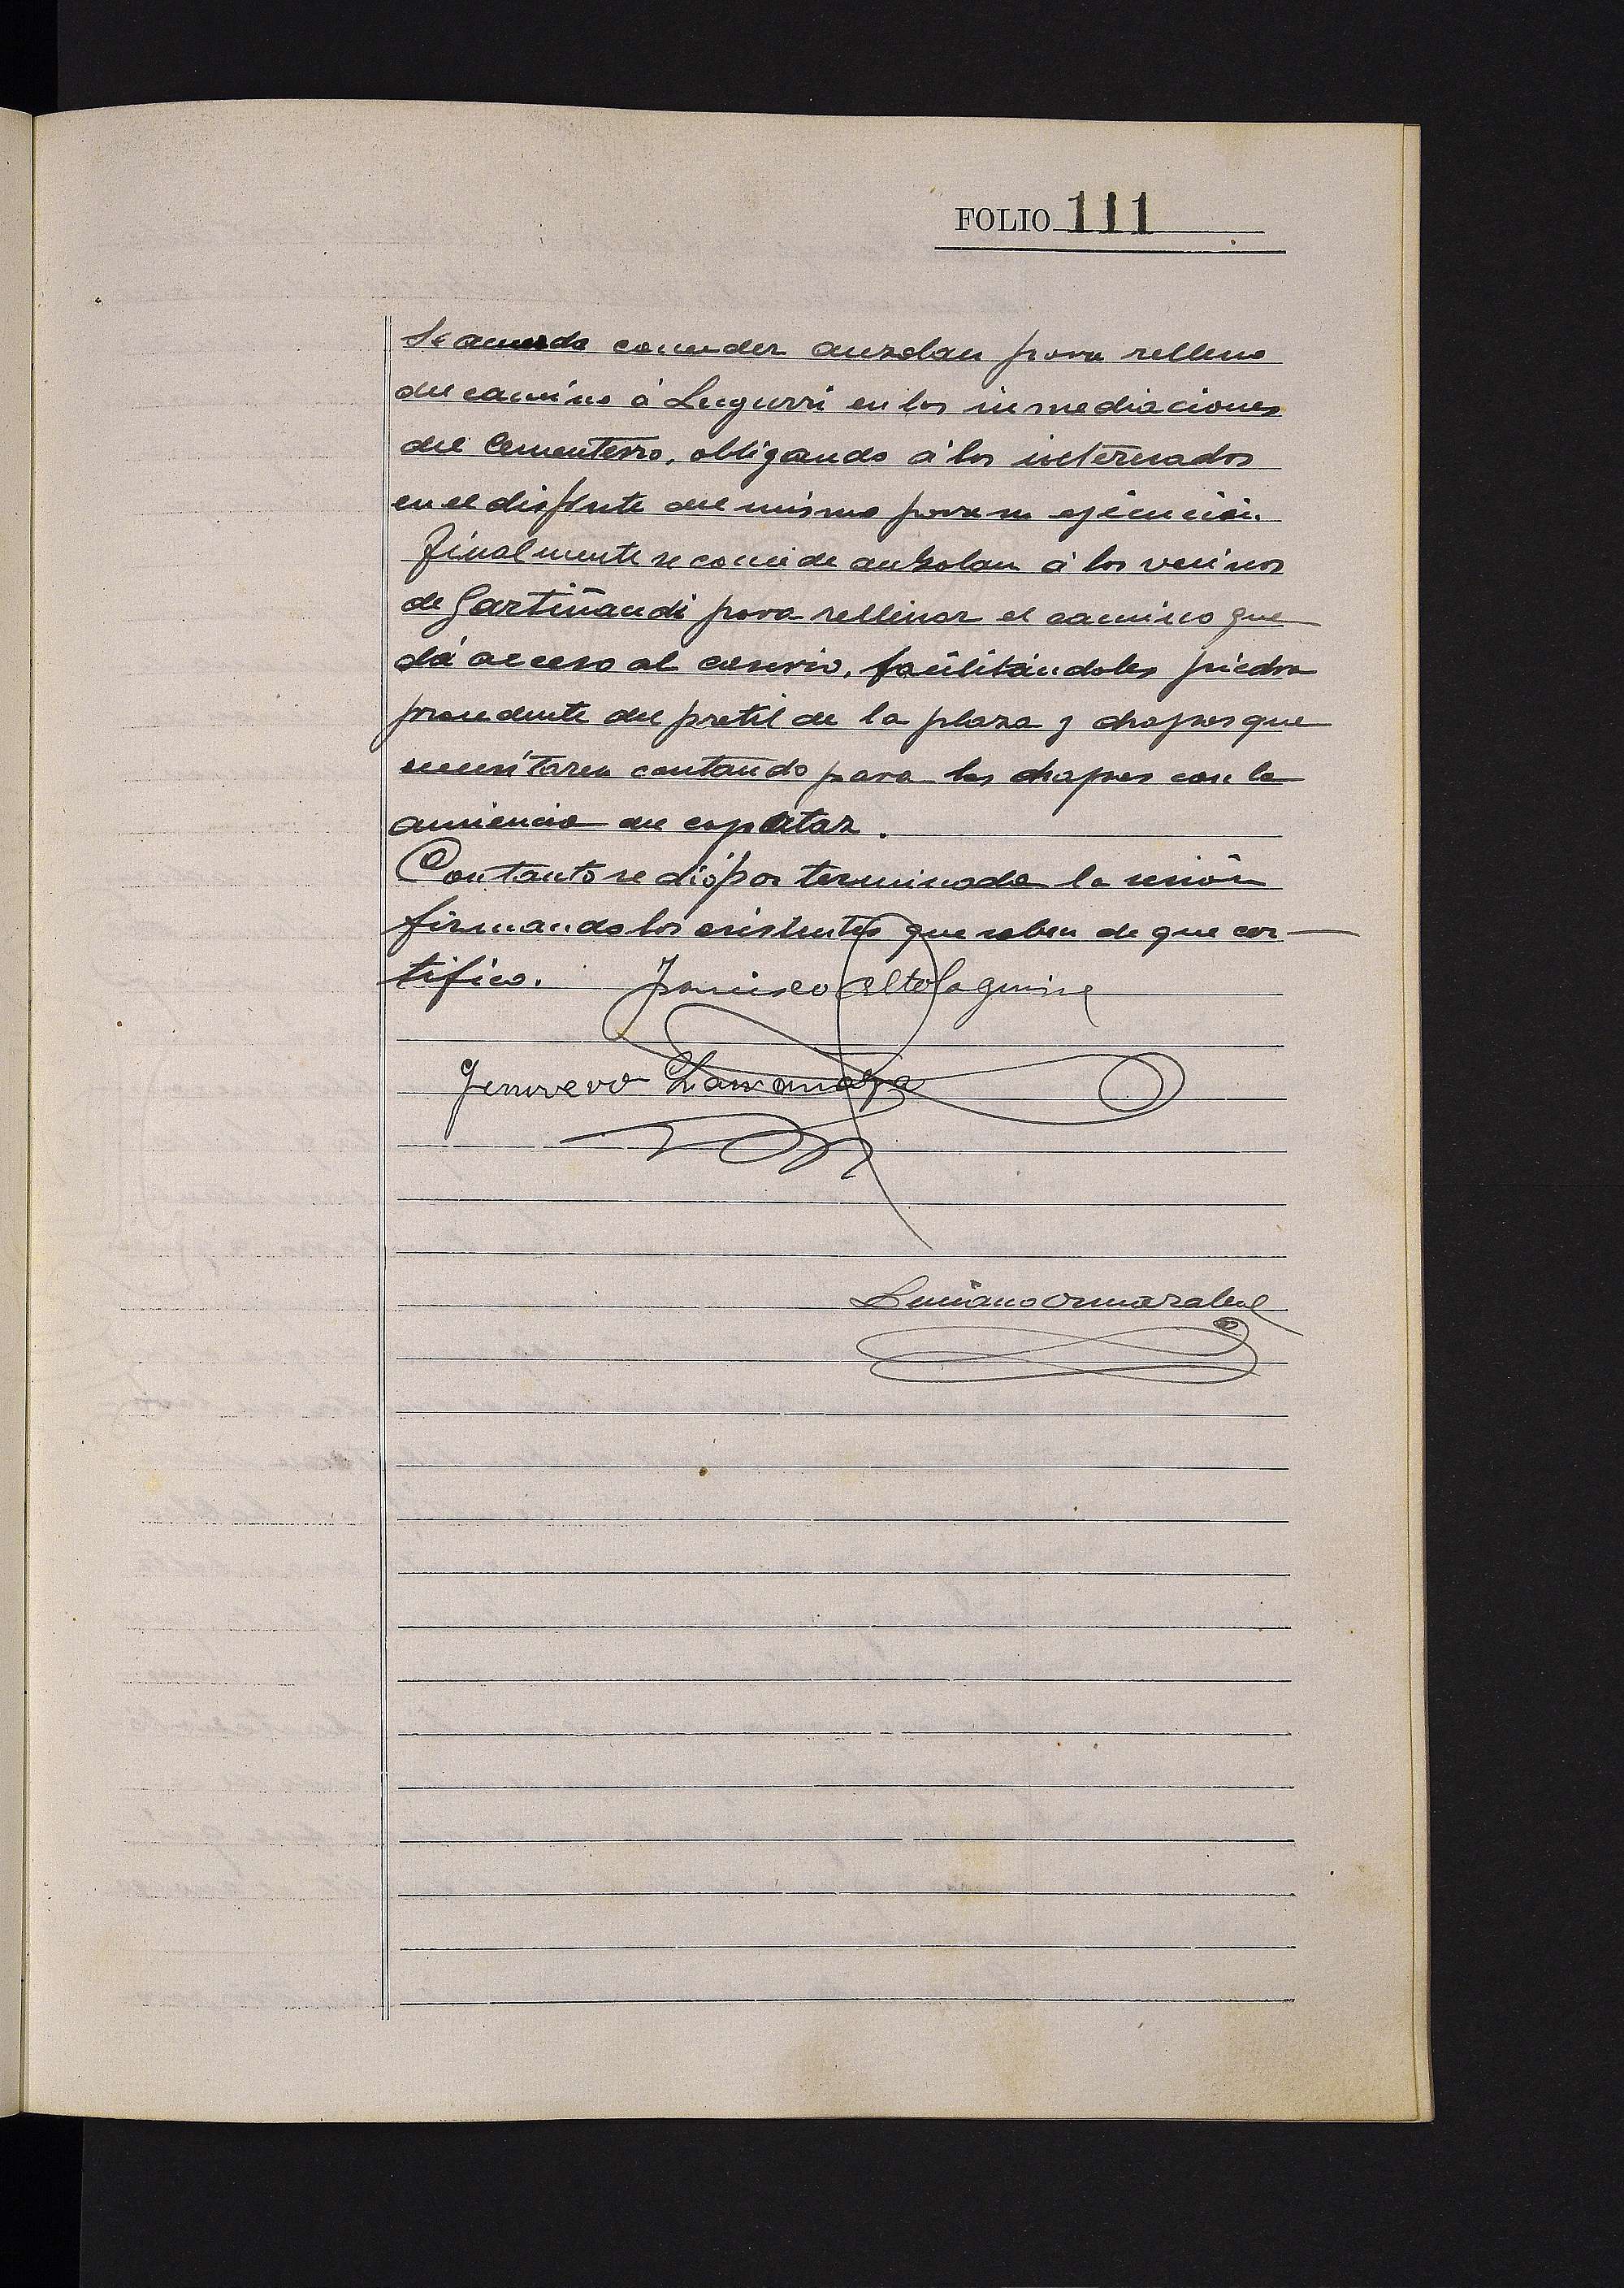 FOLIO 111
Se acuerda conceder auzolan para relleno
del camino á Lugurri en las inmediaciones
del Cementerio, obligando á los interesados
en el disfrute del mismo para su ejecución.
Finalmente se concede auzolan á los vecinos
de Gartiñandi para rellenar el camino que
dá acceso al caserio, facilitándoles piedra
procedente del pretil de la plaza y chapas que
necesitaren contando para las chapas con la
anuencia del capataz.
Con tanto se dió por terminada la sesión
firmando los asistentes que saben de que cer-
tifico. Francisco Altolaguirre
Genoveva
Luciano